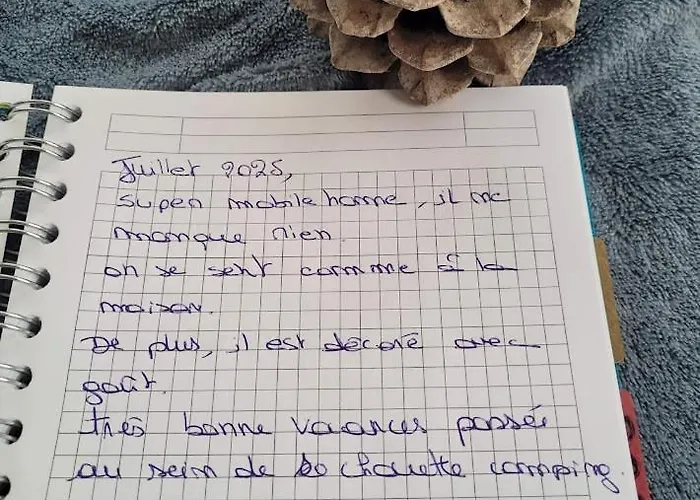 Juillet 2025,
Super mobile home, il ne
manque rien.
on se sent comme à la
maison.
De plus, il est décoré avec
goût.
très bonne vacances passée
au sein de ce chouette camping.